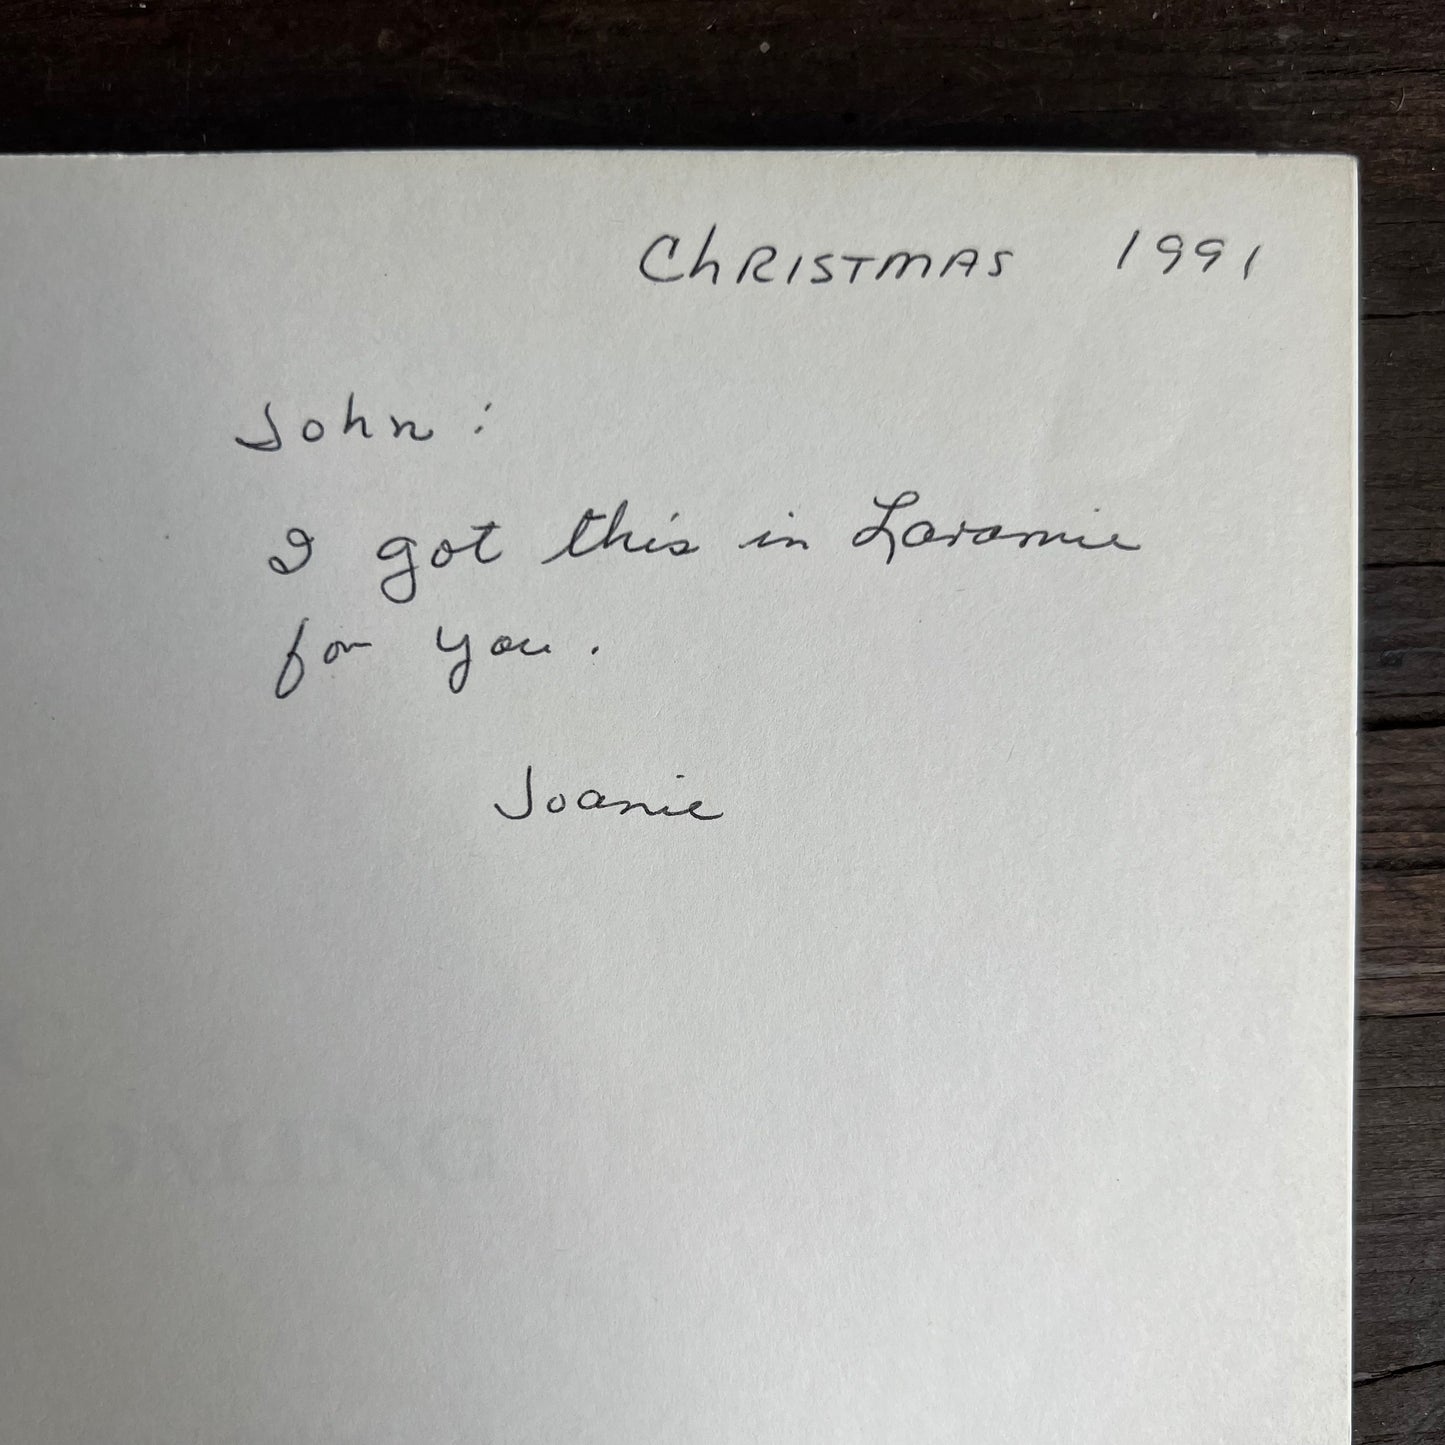 Christmas 1991
John:
I got this in Laramie
for you.
Joanie